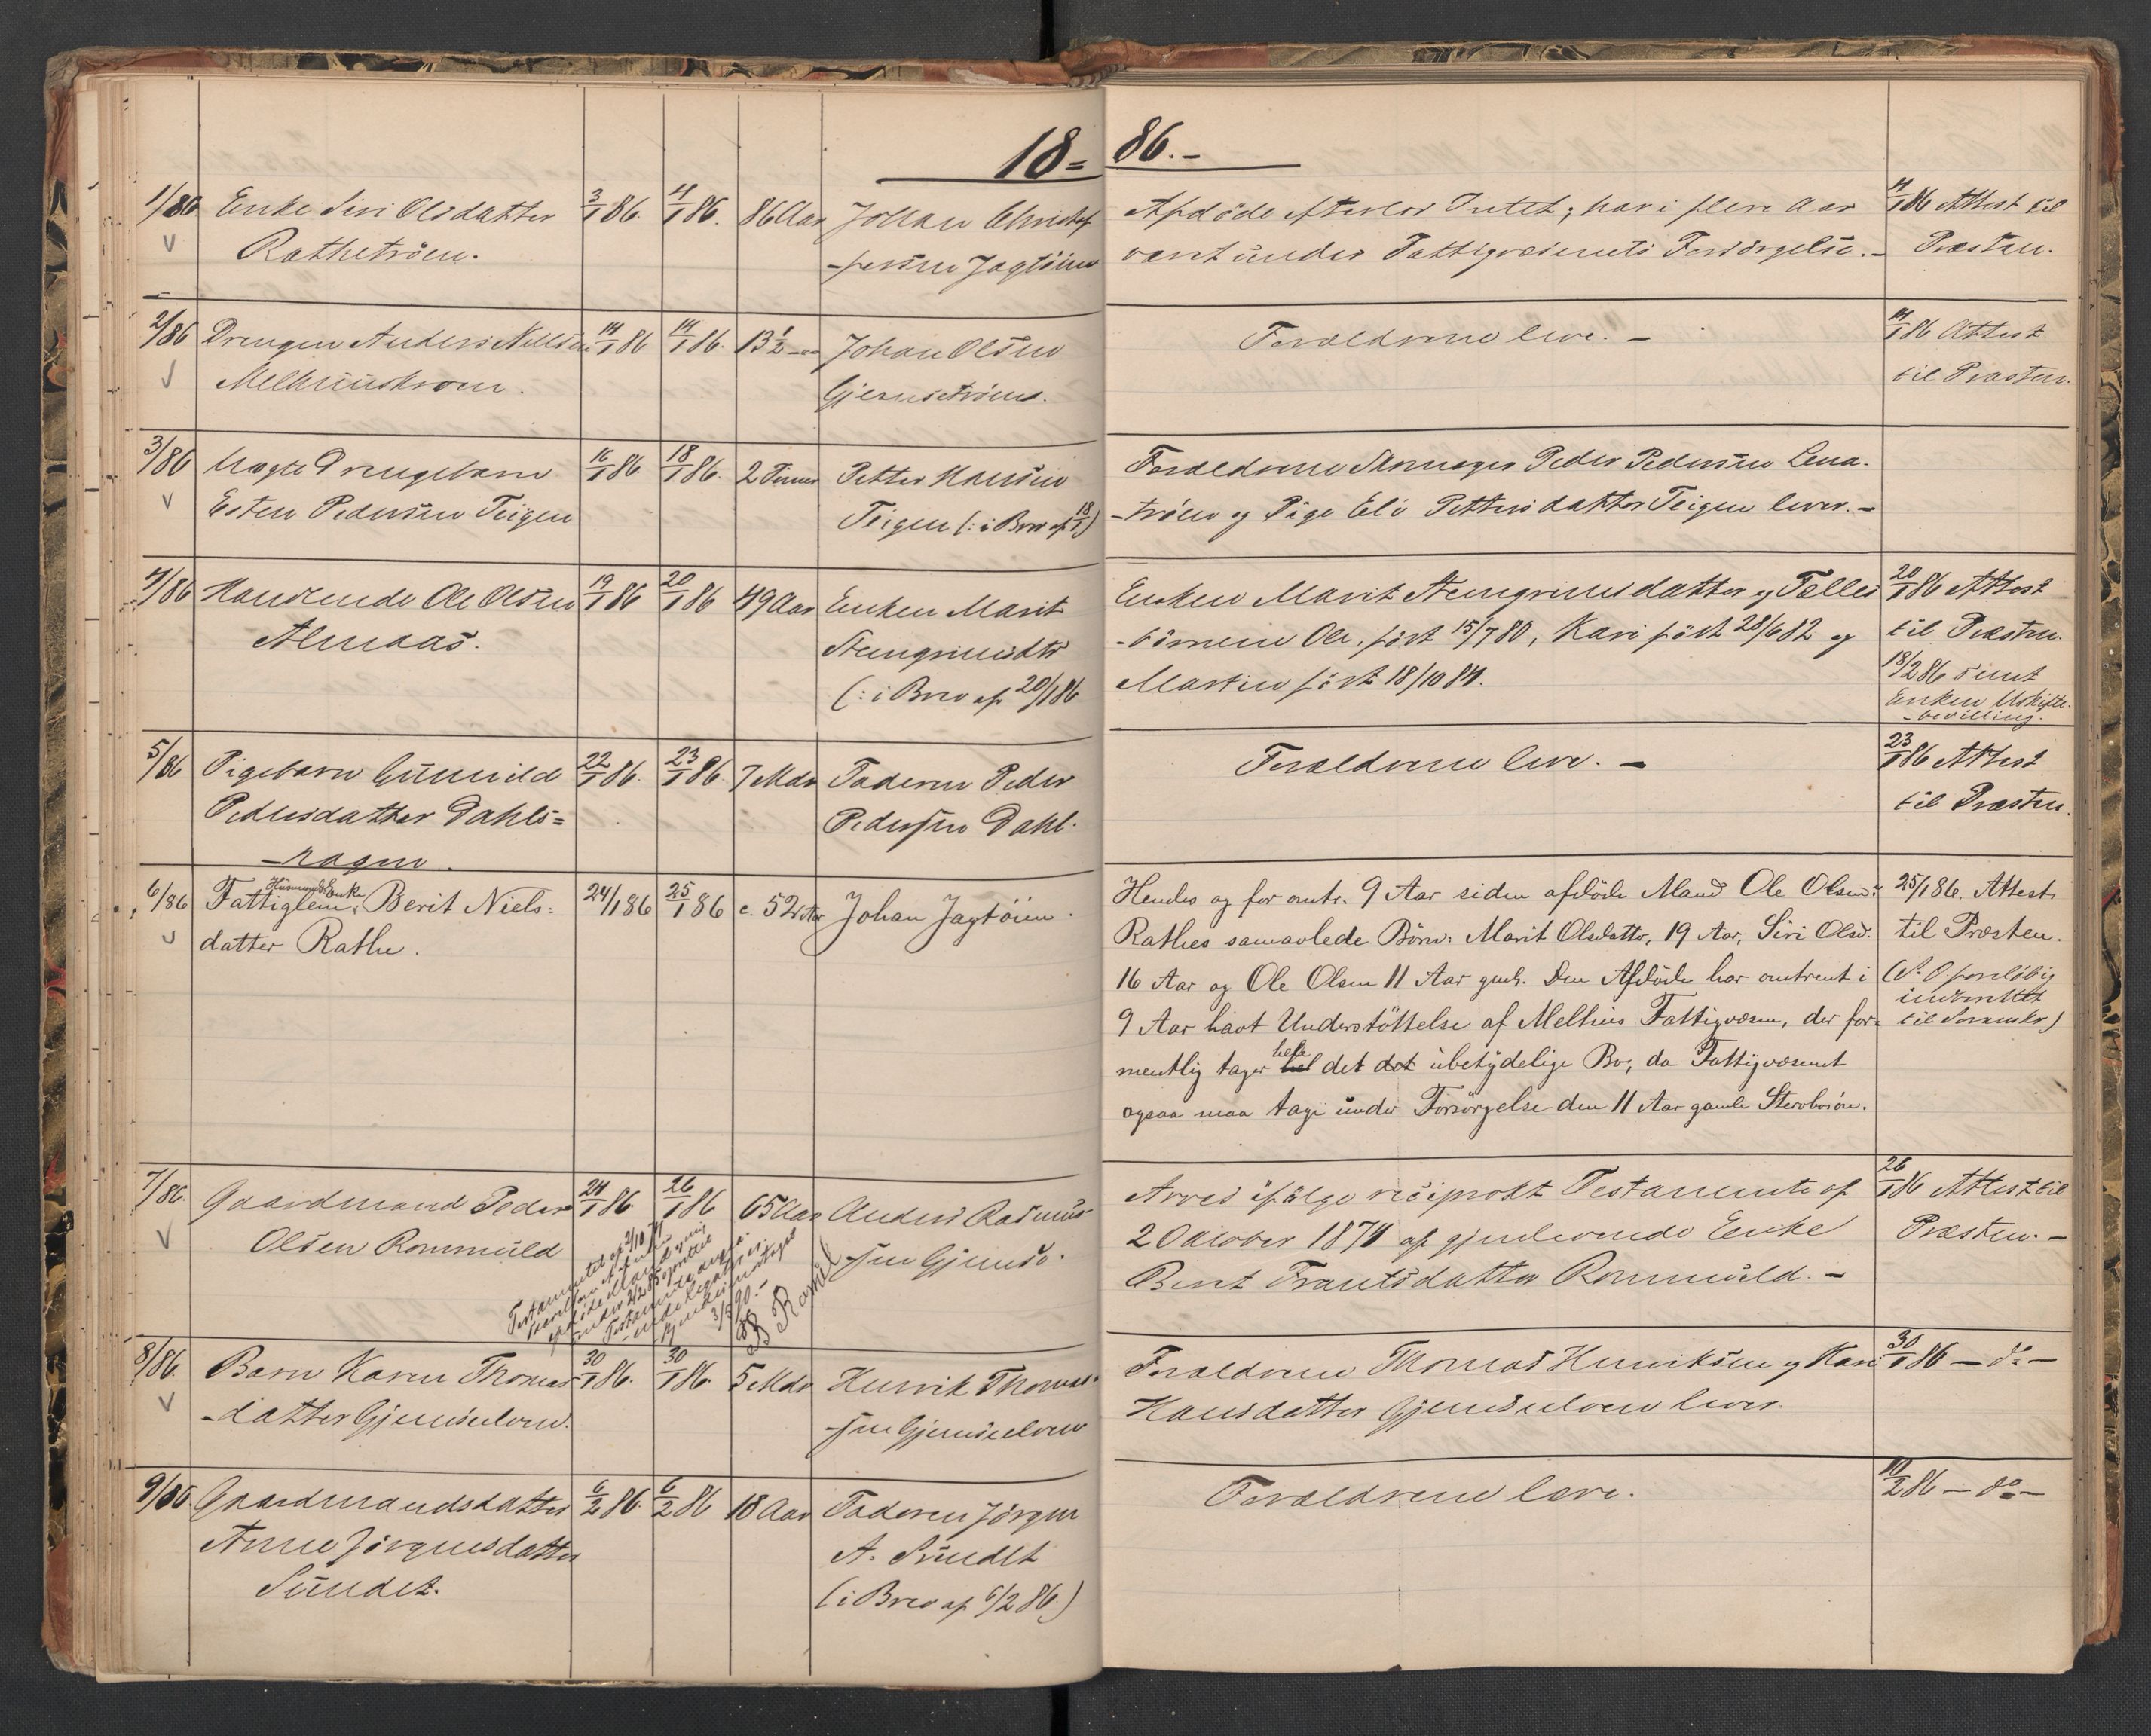 18= 86.-
1/86 Enke Siri Olsdatter 3/1 86. 4/1 86. 86 Aar Johan Christof Afdöde efterlod Intet; har i flere Aar 4/1 86 Attest til
Rathetröen. -fersen Jagtöien været under Fattigvæsenets Forsörgelse.- Præsten.
2/86 Drengen Anders Nilsen 14/1 86 14/1 86. 13 1/2 -"- Johan Olsen Forældrene leve. - 14/1 86 Attest
Melhuuskroen. Gjemsetröen. til Præsten.
3/86 Uægte Drengebarn 16/1 86 18/1 86. 2 Timer Petter Hansen Forældrene Skomager Peder Pedersen Lena-
Esten Pedersen Teigen Teigen (: i Brev af 18/1) -tröen og Pige Eli Pettersdatter Teigen lever.-
4/86 Huusmand Ole Olsen 19/1 86 20/1 86 49 Aar Enken Marit Enken Marit Steingrimsdatter og Fælles 20/1 86 Attest
Almaas. Steingrimsdtr -börnene Ole, födt 15/7 80, Kari födt 28/6 82 og til Præsten.
(: i Brev af 20/1 86 Martin födt 18/10 84. 18/2 86 sendt
Enken Uskifte-
-bevilling.
5/86 Pigebarn Gunnild 22/1 86. 23/1 86 7 Mdr Faderen Peder Forældrene leve. - 23/1 86 Attest
Pedersdatter Dahls= Pedersen Dahl. til Præsten.
-hagen.
6/86 Fattiglem, Husmands Enke Berit Niels= 24/1 86 25/1 86 c. 52 Aar Johan Jagtöien. Hendes og for omtr. 9 Aar siden afdöde Mand Ole Olsen 25/1 86. Attest
datter Rathe. Rathes samavlede Börn: Marit Olsdatter, 19 Aar, Siri Olsd. til Præsten.
16 Aar og Ole Olsen 11 Aar gml. Den Afdöde har omtrent i foreløbig
9 Aar havt Understöttelse af Melhus Fattigvæsen, der for= indberettet
mentlig tager hele det det ubetydelige Bo, da Fattigvæsenet til
ogsaa maa tage under Forsörgelse den 11 Aar gamle Stervbosön.
7/86. Gaardmand Peder 24/1 86. 26/1 86 65 Aar Anders Rasmus- Arves ifölge reciprokt Testamente af 26/1 86 Attest til
Olsen Rommuld -sen Gjemse. 2 Oktober 1874 af gjenlevende Enke Præsten.-
Berit Frantsdatter Rommuld.-
Testamentet af 2/10 74
Testamente
3/5 90.-
8/86. Barn Karen Thomas 30/1 86. 30/1 86. 5 Mdr Henrik Thomas- Forældrene Thomas Henriksen og Kari 30/1 86 - do -
-datter -sen Hansdatter lever.
9/86. Gaardmandsdatter 6/2 86. 6/2 86 18 Aar Faderen Jörgen Forældrene leve. 10/2 86 - do -
Anne Jörgensdatter A. Sundet
Sundet. (i Brev af 6/2 86.)